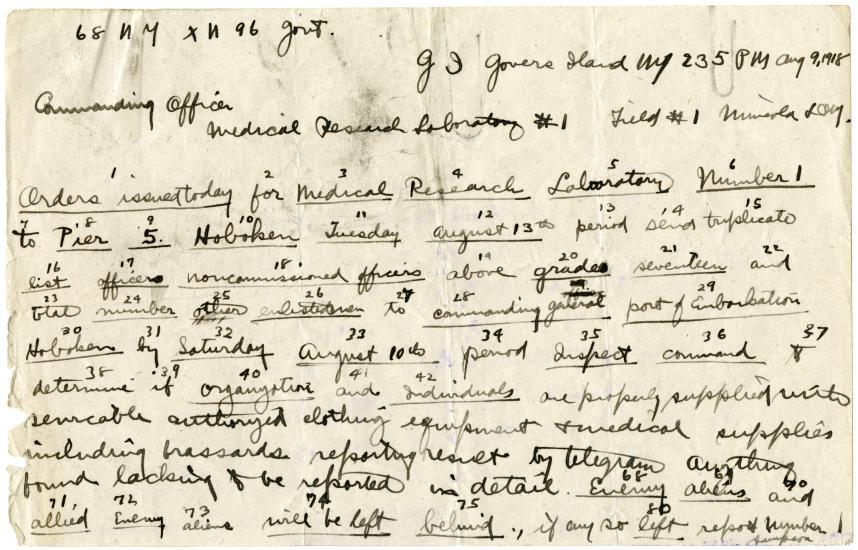 68 NY XN 96 Govt.
G I Govers Iland NY 235 PM Aug 9, 1918
Commanding Officer
Medical Research Laboratory #1 Field #1 Mineola L I NY.
1 2 3 4 5 6
Orders issued today for Medical Research Laboratory Number 1
7 8 9 10 11 12 13 14 15
to Pier 5. Hoboken Tuesday August 13th period send triplicate
16 17 18 19 20 21 22
list officers noncommissioned officers above grade seventeen and
23 24 25 26 27 28 29
total number other enlistedmen to commanding general port of Embarkation
30 31 32 33 34 35 36 37
Hoboken by Saturday August 10th period Inspect command &
38 39 40 41 42
determine if organization and individuals are properly supplied with
servicable authorized clothing equipment & medical supplies
including brassards reporting result by telegram anything
found lacking to be reported in detail.
68 69 70
Enemy aliens and
71 72 73 74 75 80
allied Enemy aliens will be left behind., if any so left report Number 1